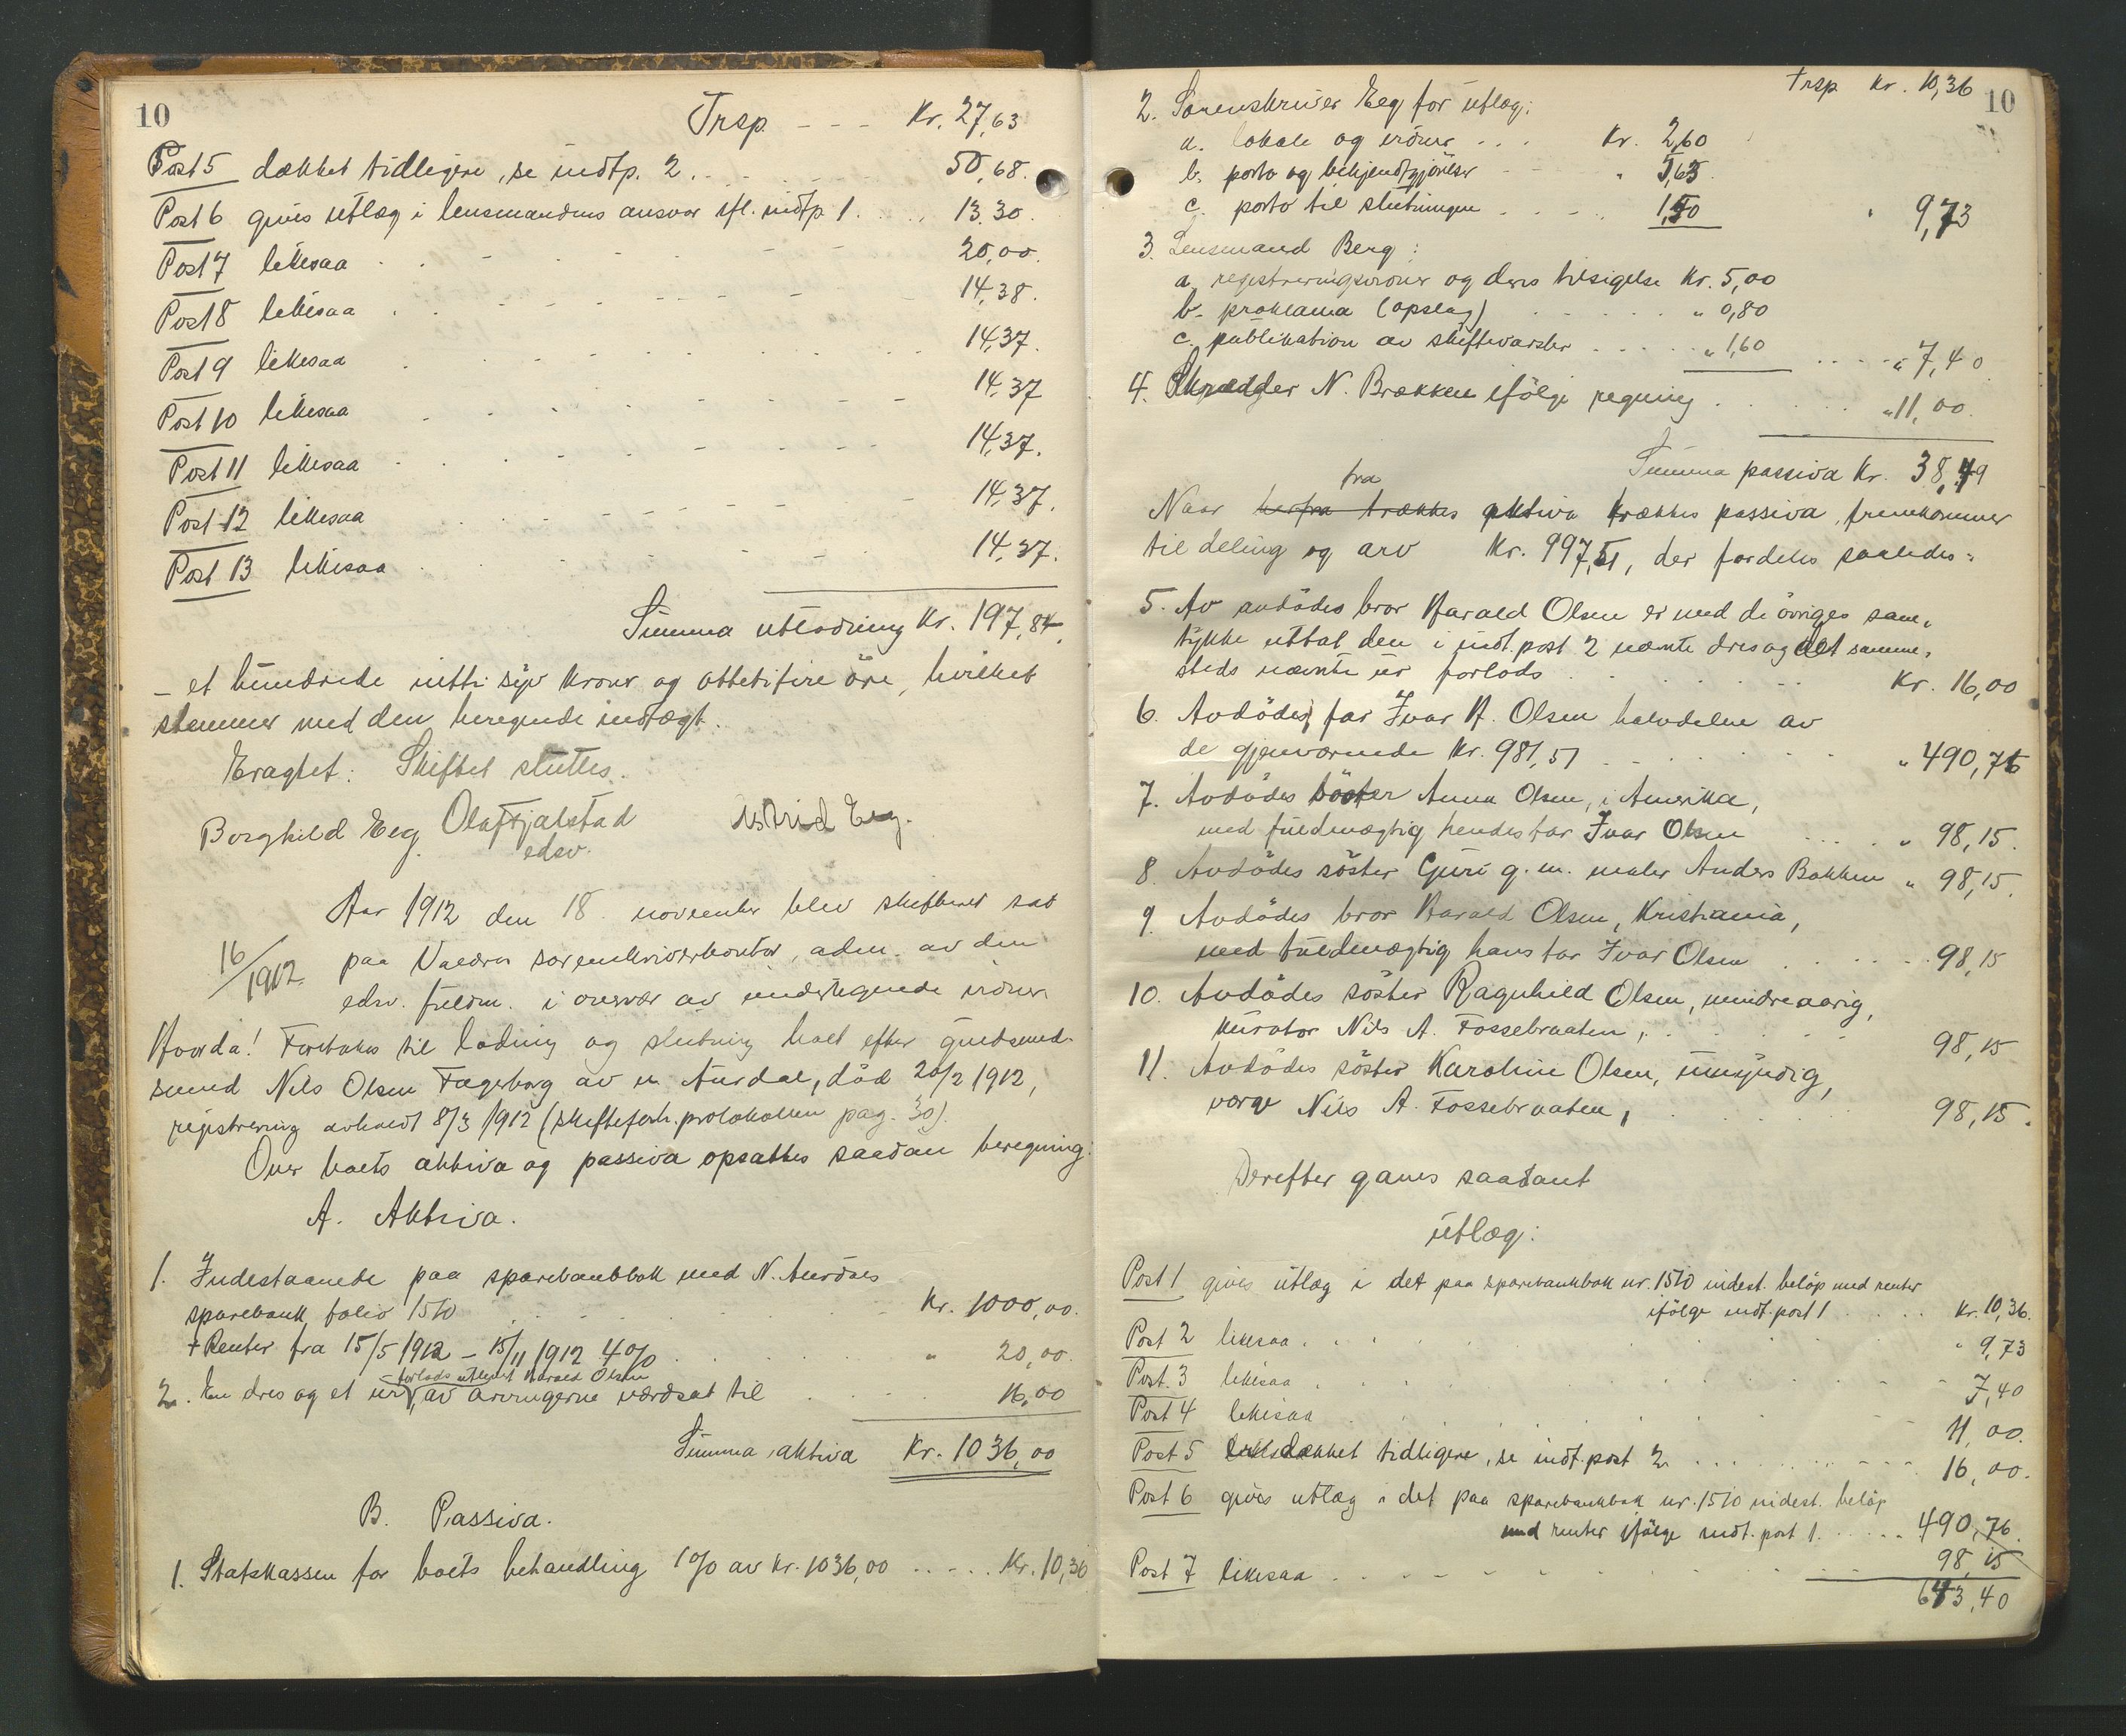 10
Trsp. - - - Kr. 27,63
Post 5 dækket tidligere, se indtp. 2. . . . . 50,68.
Post 6 gives utlæg i lensmandens ansvar ifl. indtp 1. . . 13.30.
Post 7 likesaa . . . 20,00.
Post 8 likesaa . . . 14,38.
Post 9 likesaa . . . 14,37.
Post 10 likesaa . . . 14,37
Post 11 likesaa . . . 14,37.
Post 12 likesaa . . . 14,37.
Post 13 likesaa . . . 14,37.
Summa utlodning Kr. 197,84,
- et hundrede nitti syv kroner og ottetifire øre, hvilket
stemmer med den beregnede indtægt.
Eragtet: Skiftet sluttes.
Borghild Eeg. Olaf Fjalstad Astrid Eeg.
edsv.
Aar 1912 den 18. november blev skifteret sat
16/1912. paa Valdres sorenskriverkontor, adm. av den
edsv. fuldm. i overvær av undertegnede vidner.
Hvorda! Foretokes til lodning og slutning boet efter guldsmed-
svend Nils Olsen Fagerborg av n. Aurdal, død 20/2 1912,
registrering avholdt 8/3 1912 (skifteforh.protokollen pag. 30).
Over boets aktiva og passiva opsattes saadan beregning:
A. Aktiva.
1. Indestaaende paa sparebankbok med N. Aurdals
sparebank, folio 1510 . . . Kr. 1000,00.
+ Renter fra 15/5 1912 - 15/11 1912 4% . . . " 20,00.
forlods utlagt Harald Olsen
2. En dres og et ur, av arvingerne værdsat til . . . 16,00
Summa aktiva Kr. 1036,00
B. Passiva.
1. Statskassen for boets behandling 1% av kr. 1036,00 . . . . . Kr. 10,36
Trsp. Kr. 10,36
10
2. Sorenskriver Eeg for utlæg:
a. lokale og vidner . . . Kr. 2,60
b. porto og bekjendtgjørelser - - " 5,63.
c. porto til slutningen . . . . " 1,50 " 9,73
3. Lensmand Berg:
a. registreringsvidner og deres tilsigelse Kr. 5,00
b. proklama (opslag) . . . . . " 0,80
c. publikation av skiftevarsler . . . . . " 1,60 . . . . " 7,40
4. Skrædder N. Brækken ifølge regning . . . . . " 11,00.
Summa passiva Kr. 38,49
fra
Naar herfra trækkes aktiva trækkes passiva, fremkommer
til deling og arv Kr. 997,51, der fordeles saaledes:
5. Av avdødes bror Harald Olsen er med de øvriges sam-
tykke uttat den i indt. post 2 nævnte dres og det samme-
steds nævnte ur forlods . . . Kr. 16,00
6. Avdødes far Ivar H. Olsen halvdelen av
de gjenværende Kr. 981,51 . . . " 490,76
7. Avdødes søster Anna Olsen, i Amerika,
med fuldmægtig hendes far Ivar Olsen . . . " 98,15.
8. Avdødes søster Guri g. m. maler Anders Bakken " 98,15.
9. Avdødes bror Harald Olsen, Kristiania,
med fuldmægtig hans far Ivar Olsen . . . 98,15
10. Avdødes søster Ragnhild Olsen, mindreaarig,
kurator Nils A. Fossebraaten, . . . 98,15
11. Avdødes søster Karoline Olsen, umyndig,
værge Nils A. Fossebraaten, . . . 98,15.
Derefter gaves saadant
utlæg:
Post 1 gives utlæg i det paa sparebankbok nr. 1510 indest. beløp med renter
ifølge indt. post 1 . . . . Kr. 10,36.
Post 2 likesaa . . . " 9,73
Post 3 likesaa . . . 7,40
Post 4 likesaa . . . 11,00.
Post 5 dækket tidligere, se indt. post 2. . . . 16,00.
Post 6 gives utlæg i det paa sparebankbok nr. 1510 indest. beløp
med renter ifølge indt. post 1. . . . 490,76.
Post 7 likesaa . . . 98,15
643,40